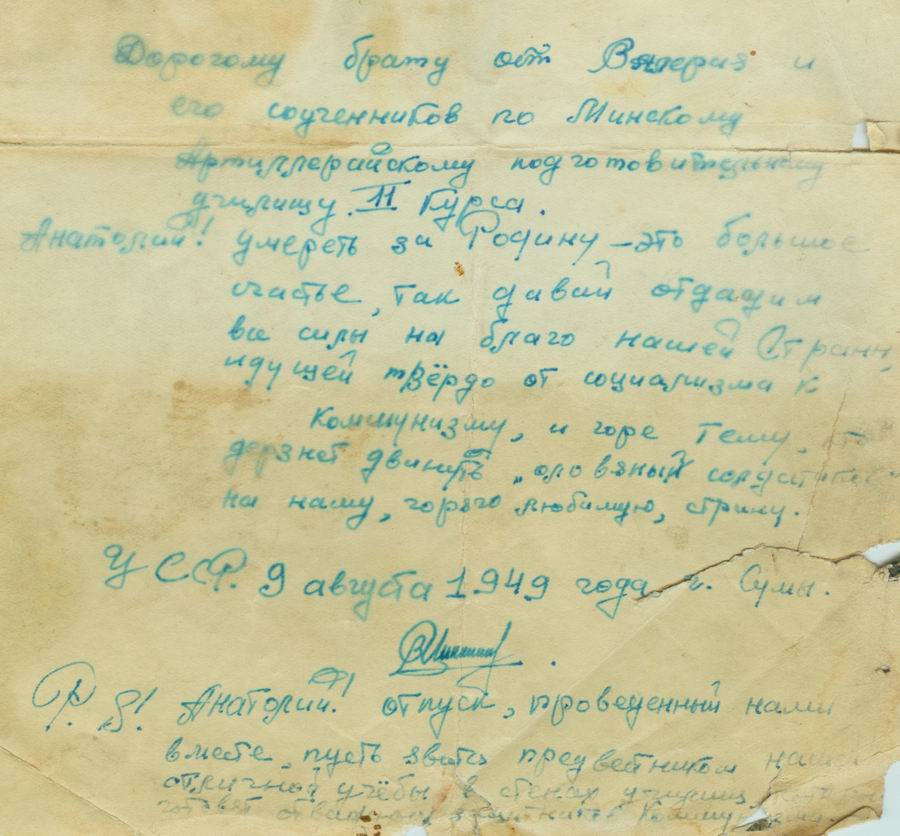 Дорогому брату от Валерия и
его соученников по Минскому
Артиллерайскому подготовительному
училищу II Курса.
Анатолий! умереть за Родину – это большое
счастье, так давай отдадим
все силы на благо нашей Страны,
идущей твёрдо от социализма к
Коммунизму, и горе тему,
дерзнёт двинуть „оловяный
на нашу, горячо любимую, страну.
УССР. 9 августа 1949 года г. Сумы.
P. S! Анатолий! отпуск, проведенный нами
вместе, пусть предвестником нашей
отличной учёбы в стенах училищ
готовят защитников Коммунизма.